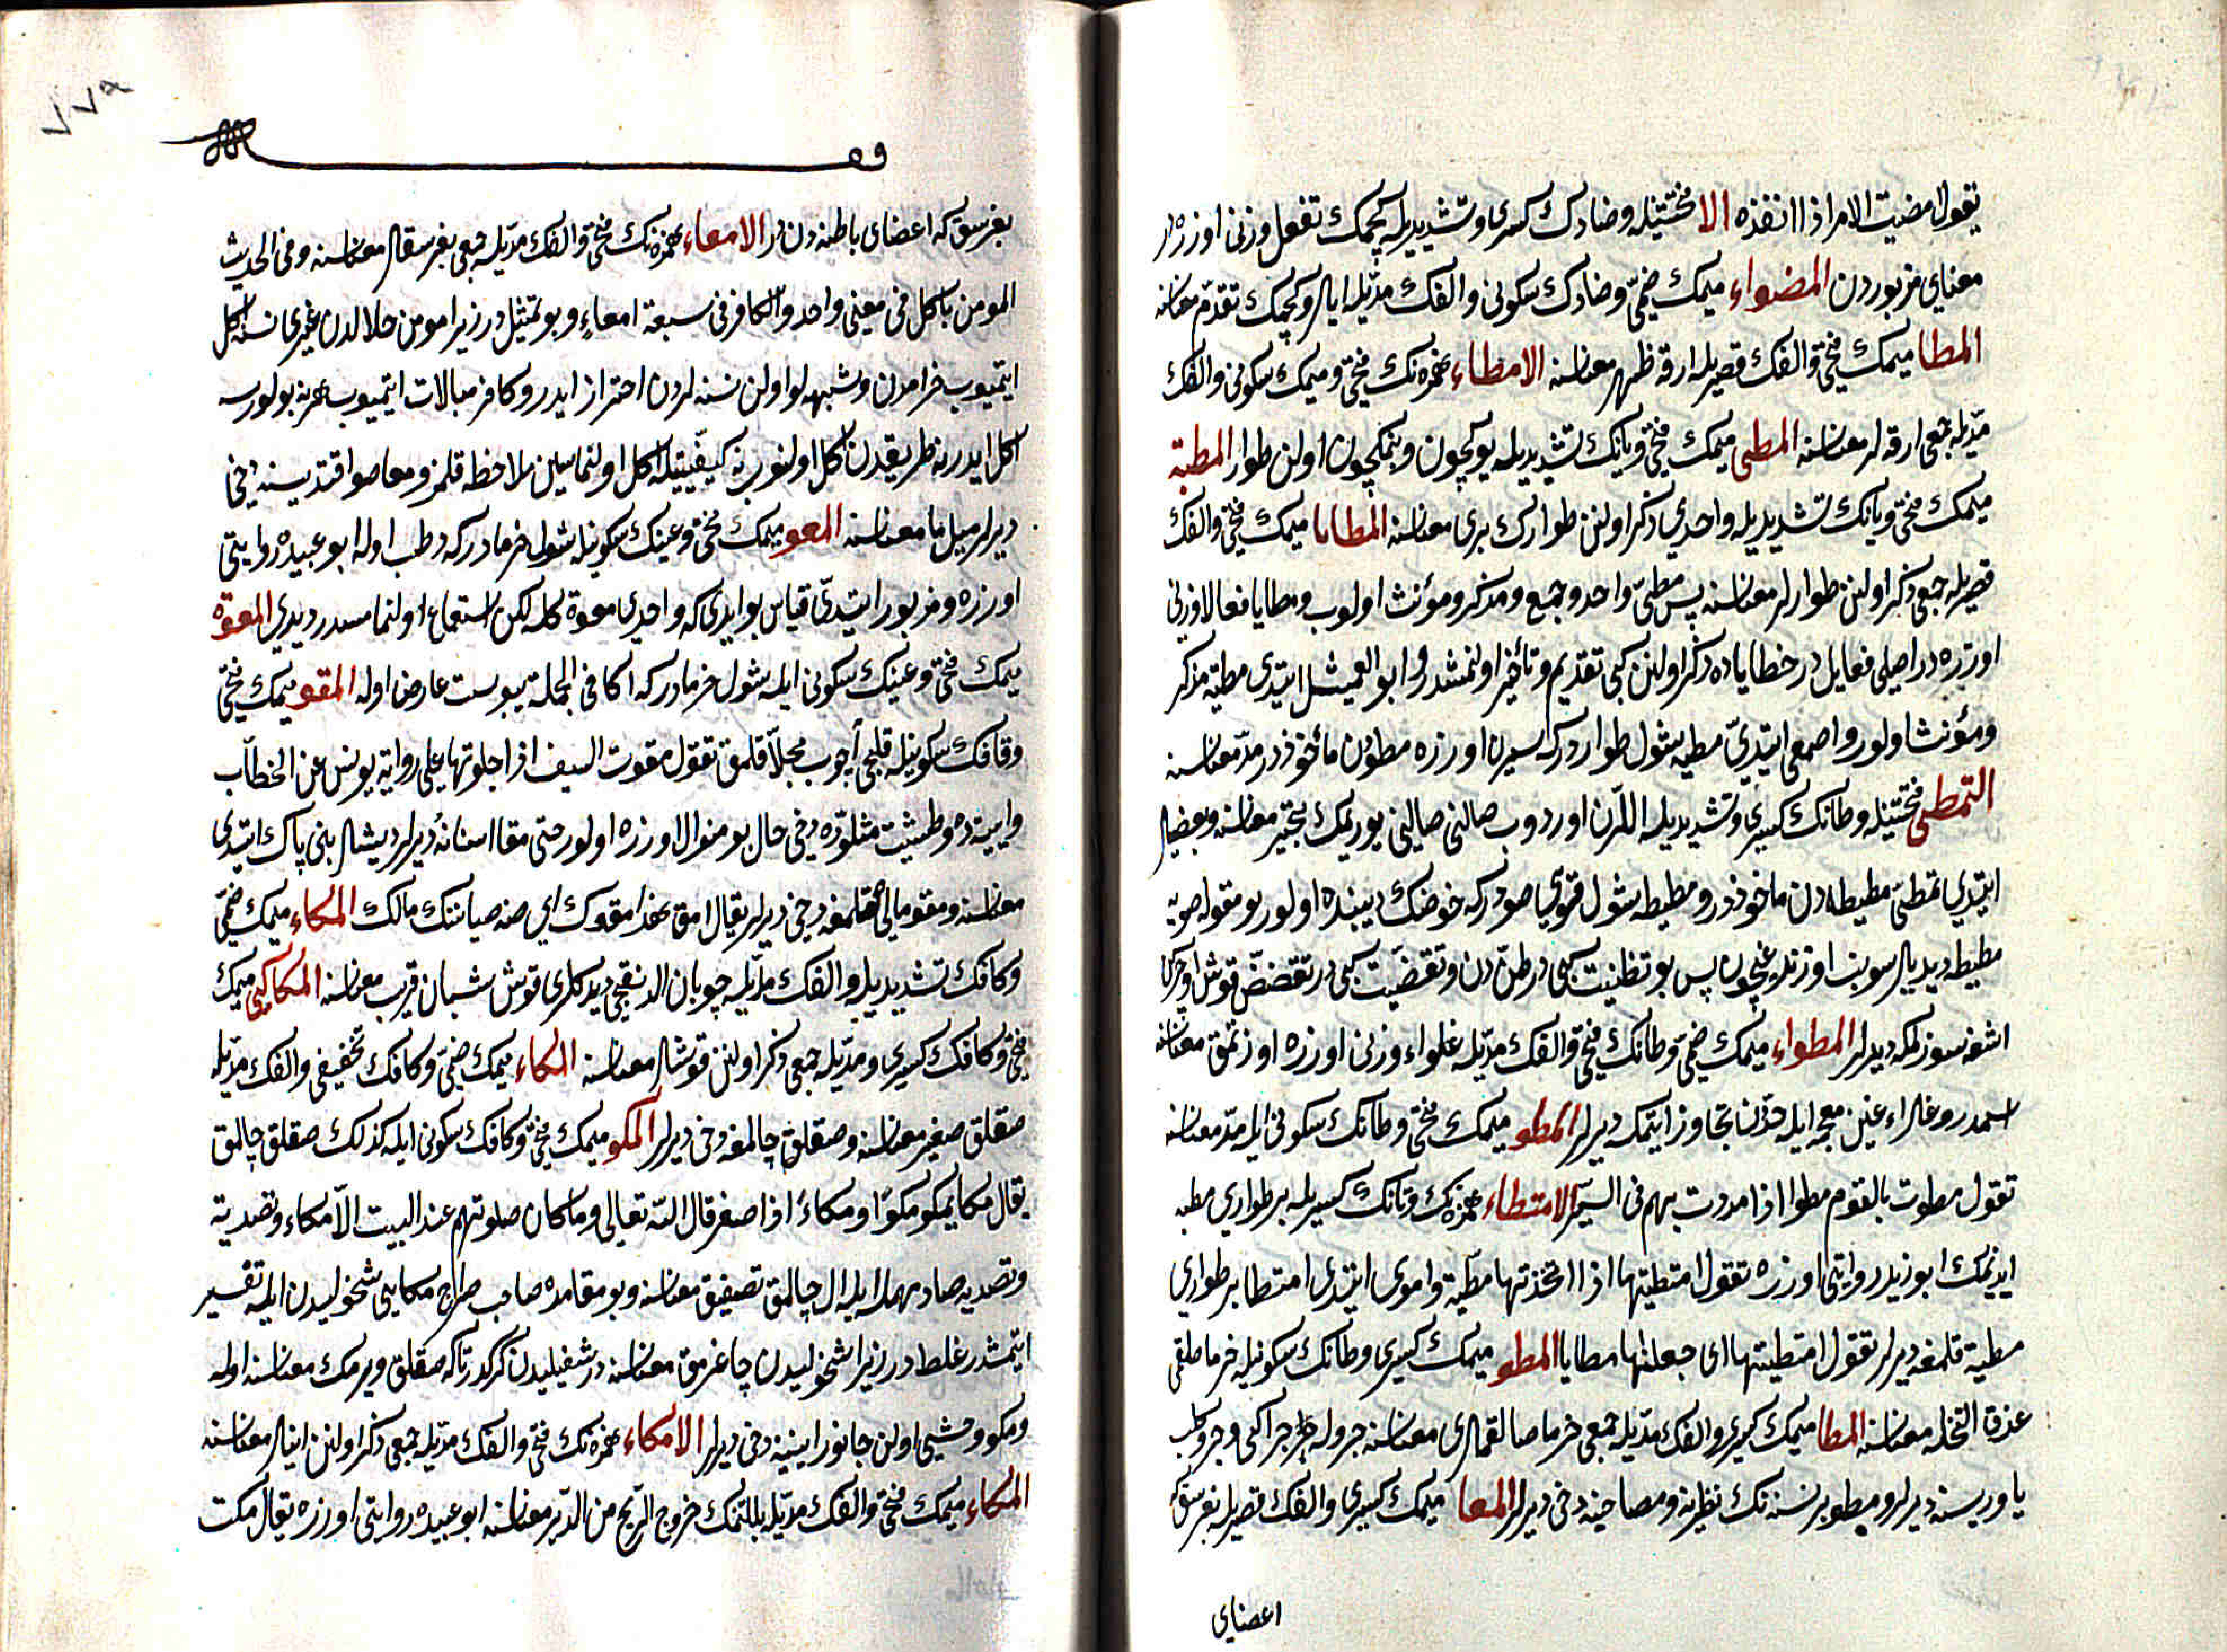 تقول مضيت الامر اذا انفذه الا فتحتيله وضادك كسرى وتشديديله كچمك تفعل وزنى اوزره در
معناى مزبوردن المضواء ميمك ضمى وضادك سكونى والفك مديله ايلرو كچمك تقدم معناسنه
المطا ميمك فتحى والفك قصريله ارقه ظهر معناسنه الامطاء همزه نك فتحى وميمك سكونى والفك
مديله جمعى ارقه لر معناسنه المطى ميمك فتحى ويانك تشديديله يوكچون وبنمكچون اولن طوار المطية
ميمك فتحى ويانك تشديديله واحدى ذكر اولنن طوارك برى معناسنه المطايا ميمك فتحى والفك
قصريله جمعى ذكر اولنن طوارلر معناسنه پس مطى واحد وجمع ومذكر ومؤنث اولوب ومطايا فعالا وزنى
اوزره در اصلى فعايل در خطاياده ذكر اولنن كبى تقديم وتأخير اولنمشدر وابو العميثل ايتدى مطية مذكر
ومؤنث اولور واصمعى ايتدى مطيه شول طواردركه سيرن اوزره مطودن مأخوذدر مد معناسنه
التمطى فتحتيله وطانك كسرى وتشديديله اللرن اوردوب صالنى صالنى يوريمك تبختر معناسنه وبعضيلر
ايتدى تمطى مطيطه دن مأخوذدر ومطيطه شول قويى صودركه حوضك ديبنده اولور بو مقوله صويه
مطيطه ديديلر سوينب اوزندوغيچون پس بو تظنيت كبى در ظن دن وتقضيت كبى در تقضض قوش اوچركن
اشغه سوزلمكه ديرلر المطواء ميمك ضمى وطانك فتحى والفك مديله غلواء وزنى اوزره اوزنمق معناسنه
اسمدر وغلواء غين معجمه ايله حددن تجاوز ايتمكه ديرلر المطو ميمك فتحى وطانك سكونى ايله مد معناسنه
تقول مطوت بالقوم مطوا اذا مددت بهم فى السير الامتطاء همزه نك وتانك كسريله بر طوارى مطيه
ايدنمك ابو زيد روايتى اوزره تقول امتطيتها اذا اتخذتها مطية واموى ايتدى امتطا بر طوارى
مطية قلمغه ديرلر تقول امتطيتها اى جعلتها مطايا المطو ميمك كسرى وطانك سكونيله خرما صلقمى
عذق النخله معناسنه المطا ميمك كسرى والفك مديله جمعى خرما صالقملرى معناسنه جرو له جراء كبى وجرو كلب
ياوريسنه ديرلر ومطو بر نسنه نك نظيرنه ومصاحبنه دخى ديرلر المعا ميمك كسرى والفك قصريله بغرسق كه
اعضاى
٧٧٩
بغرسق كه اعضاى باطنه دن در الامعاء همزه نك فتحى والفك مديله جمعى بغرسقلر معناسنه وفى الحديث
المؤمن ياكل فى معى واحد والكافر فى سبعة امعاء وبو تمثيل در زيرا مومن حلالدن غيرى نسنه اكل
ايتميوب حرامدن وشبهه لو اولن نسنه لردن احتراز ايدر وكافر مبالات ايتميوب هر نه بولورسه
اكل ايدر نه طريقدن اكل اولنور نه كيفيتيله اكل اولنماسين ملاحظه قلمز ومعا صو اقندیسنه دخى
ديرلر مسيل ما معناسنه المعو ميمك فتحى وعينك سكونيله شول خرمادركه رطب اوله ابو عبيده روايتى
اوزره ومزبور ايتدى قياس بو ايدى كه واحدى معوة كله لكن استماع اولنمامسدر ديدى المعوة
ميمك فتحى وعينك سكونى ايله شول خرمادركه اكا فى الجملة يبوست عارض اوله المقو ميمك فتحى
وقافك سكونيله قلجى آچوب مجلا قلمق تقول مقوت السيف اذا جلوتها على رواية يونس عن الخطاب
وايينه ده وطشت مثللوده دخى حال بو منوال اوزره اولور حتى مقا اسنانه ديرلر ديشلرينى پاك ايتدى
معناسنه ومقو مالى حفظ قلمغه دخى ديرلر يقال امق هذا مقوك اى صنه صيانتك مالك المكاء ميمك ضمى
وكافك تشديديله والفك مديله چوبان الدنقيجى ديدكلرى قوش شبان فريب معناسنه المكاكى ميمك
فتحى وكافك كسرى ومديله جمعى ذكر اولنن قوشلر معناسنه المكاء ميمك ضمى وكافك تخفيفى والفك مديله
صقلق صفير معناسنه وصقلق چالمغه دخى ديرلر المكو ميمك فتحى وكافك سكونى ايله كذلك صقلق چالمق
يقال مكا يمكو مكوا ومكاء اذا صفر قال الله تعالى وما كان صلوتهم عند البيت الا مكاء وتصدية
وتصديه صاد مهمله ايله ال چالمق تصفيق معناسنه وبو مقامده صاحب صراح مكايى شخوليدن ايله تفسير
ايتمشدر غلط در زيرا شخوليدن چاغرمق معناسنه در شفيليدن كركدر تاكه صقلق ويرمك معناسنه اوله
ومكو وحشى اولن جانور اينينه دخى ديرلر الامكاء همزه نك فتحى والفك مديله جمعى ذكر اولنن اينلر معناسنه
المكاء ميمك فتحى والفك مديله يللنمك خروج الريح من الدبر معناسنه ابو عبيده روايتى اوزره يقال مكت